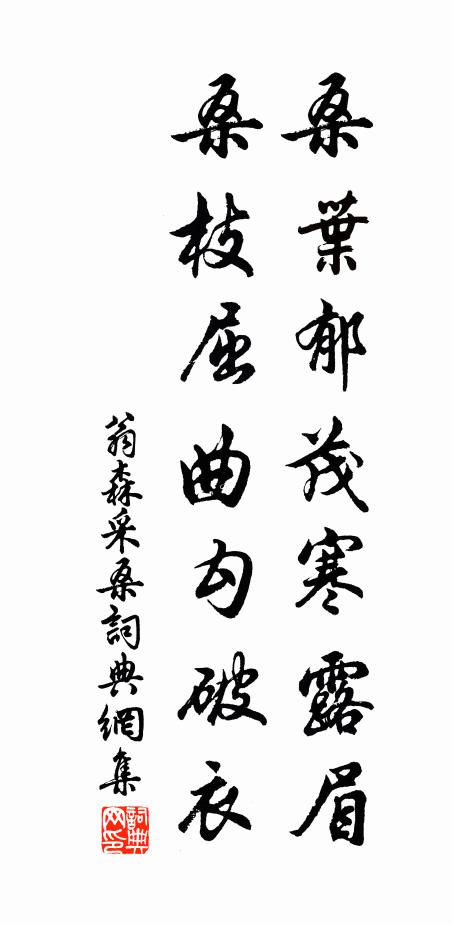 桑葉郁茂寒露眉
桑枝屈曲勾破衣
翁森采桑詞典網集
詞典网印